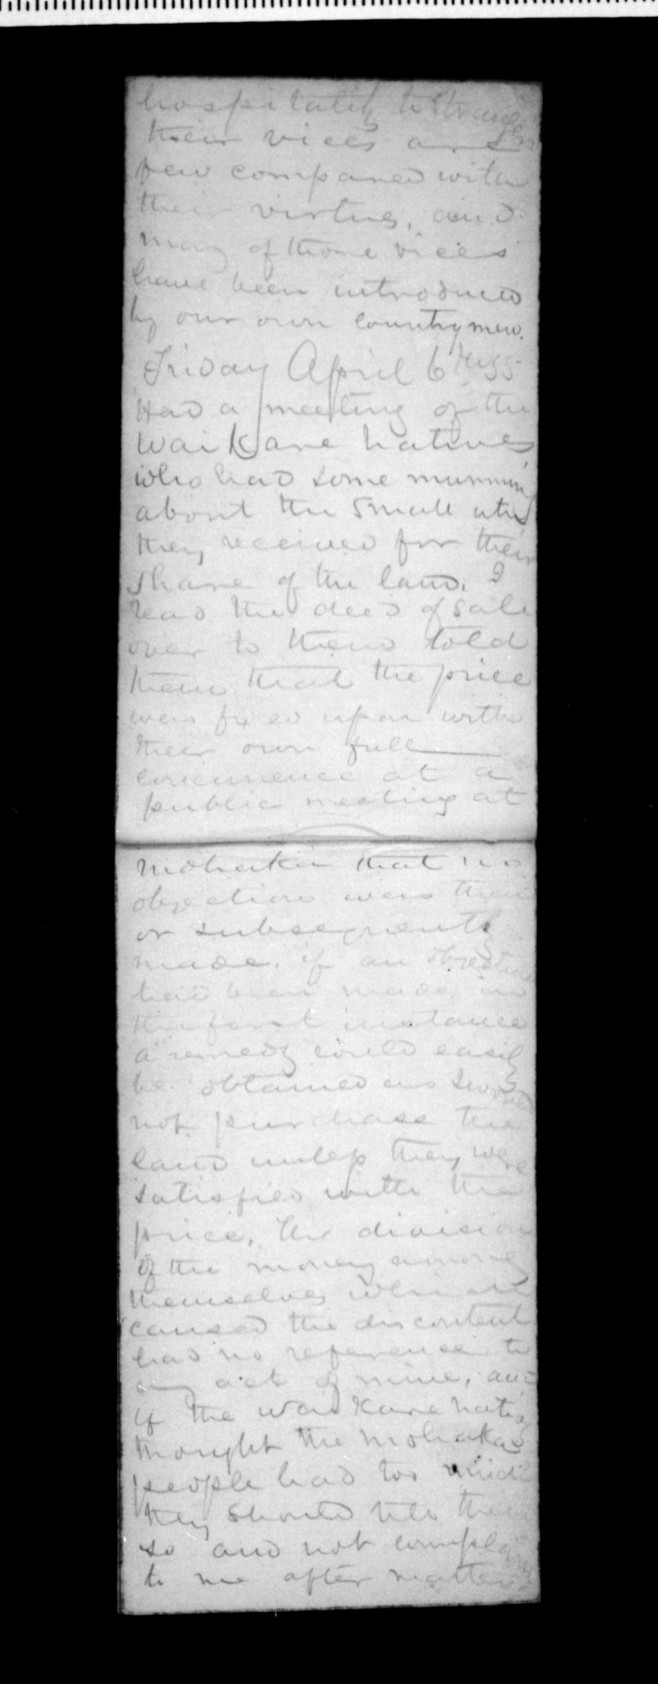 hospitality to strangers
their vices are
few compared with
their virtues, and
many of those vices
have been introduced
by our own countrymen.
Friday April 6th 55
Had a meeting of the
Waikare natives
who had some murmuring
about the small
they received for their
share of the land. I
read the deed of sale
over to them told
them that the price
was fixed upon with
their own full
concurrence at a
public meeting at
Mohaka that no
objections were then
or subsequently
made. if an objection
had been made in
the first instance
a remedy could easily
be obtained as I would
not purchase the
land unless they were
satisfied with the
price, the division
of the money among
themselves which
caused the discontent
had no reference to
any act of mine, and
if the Waikare natives
thought the Mohaka
people had too much
they should tell them
so and not complain
to me after matters